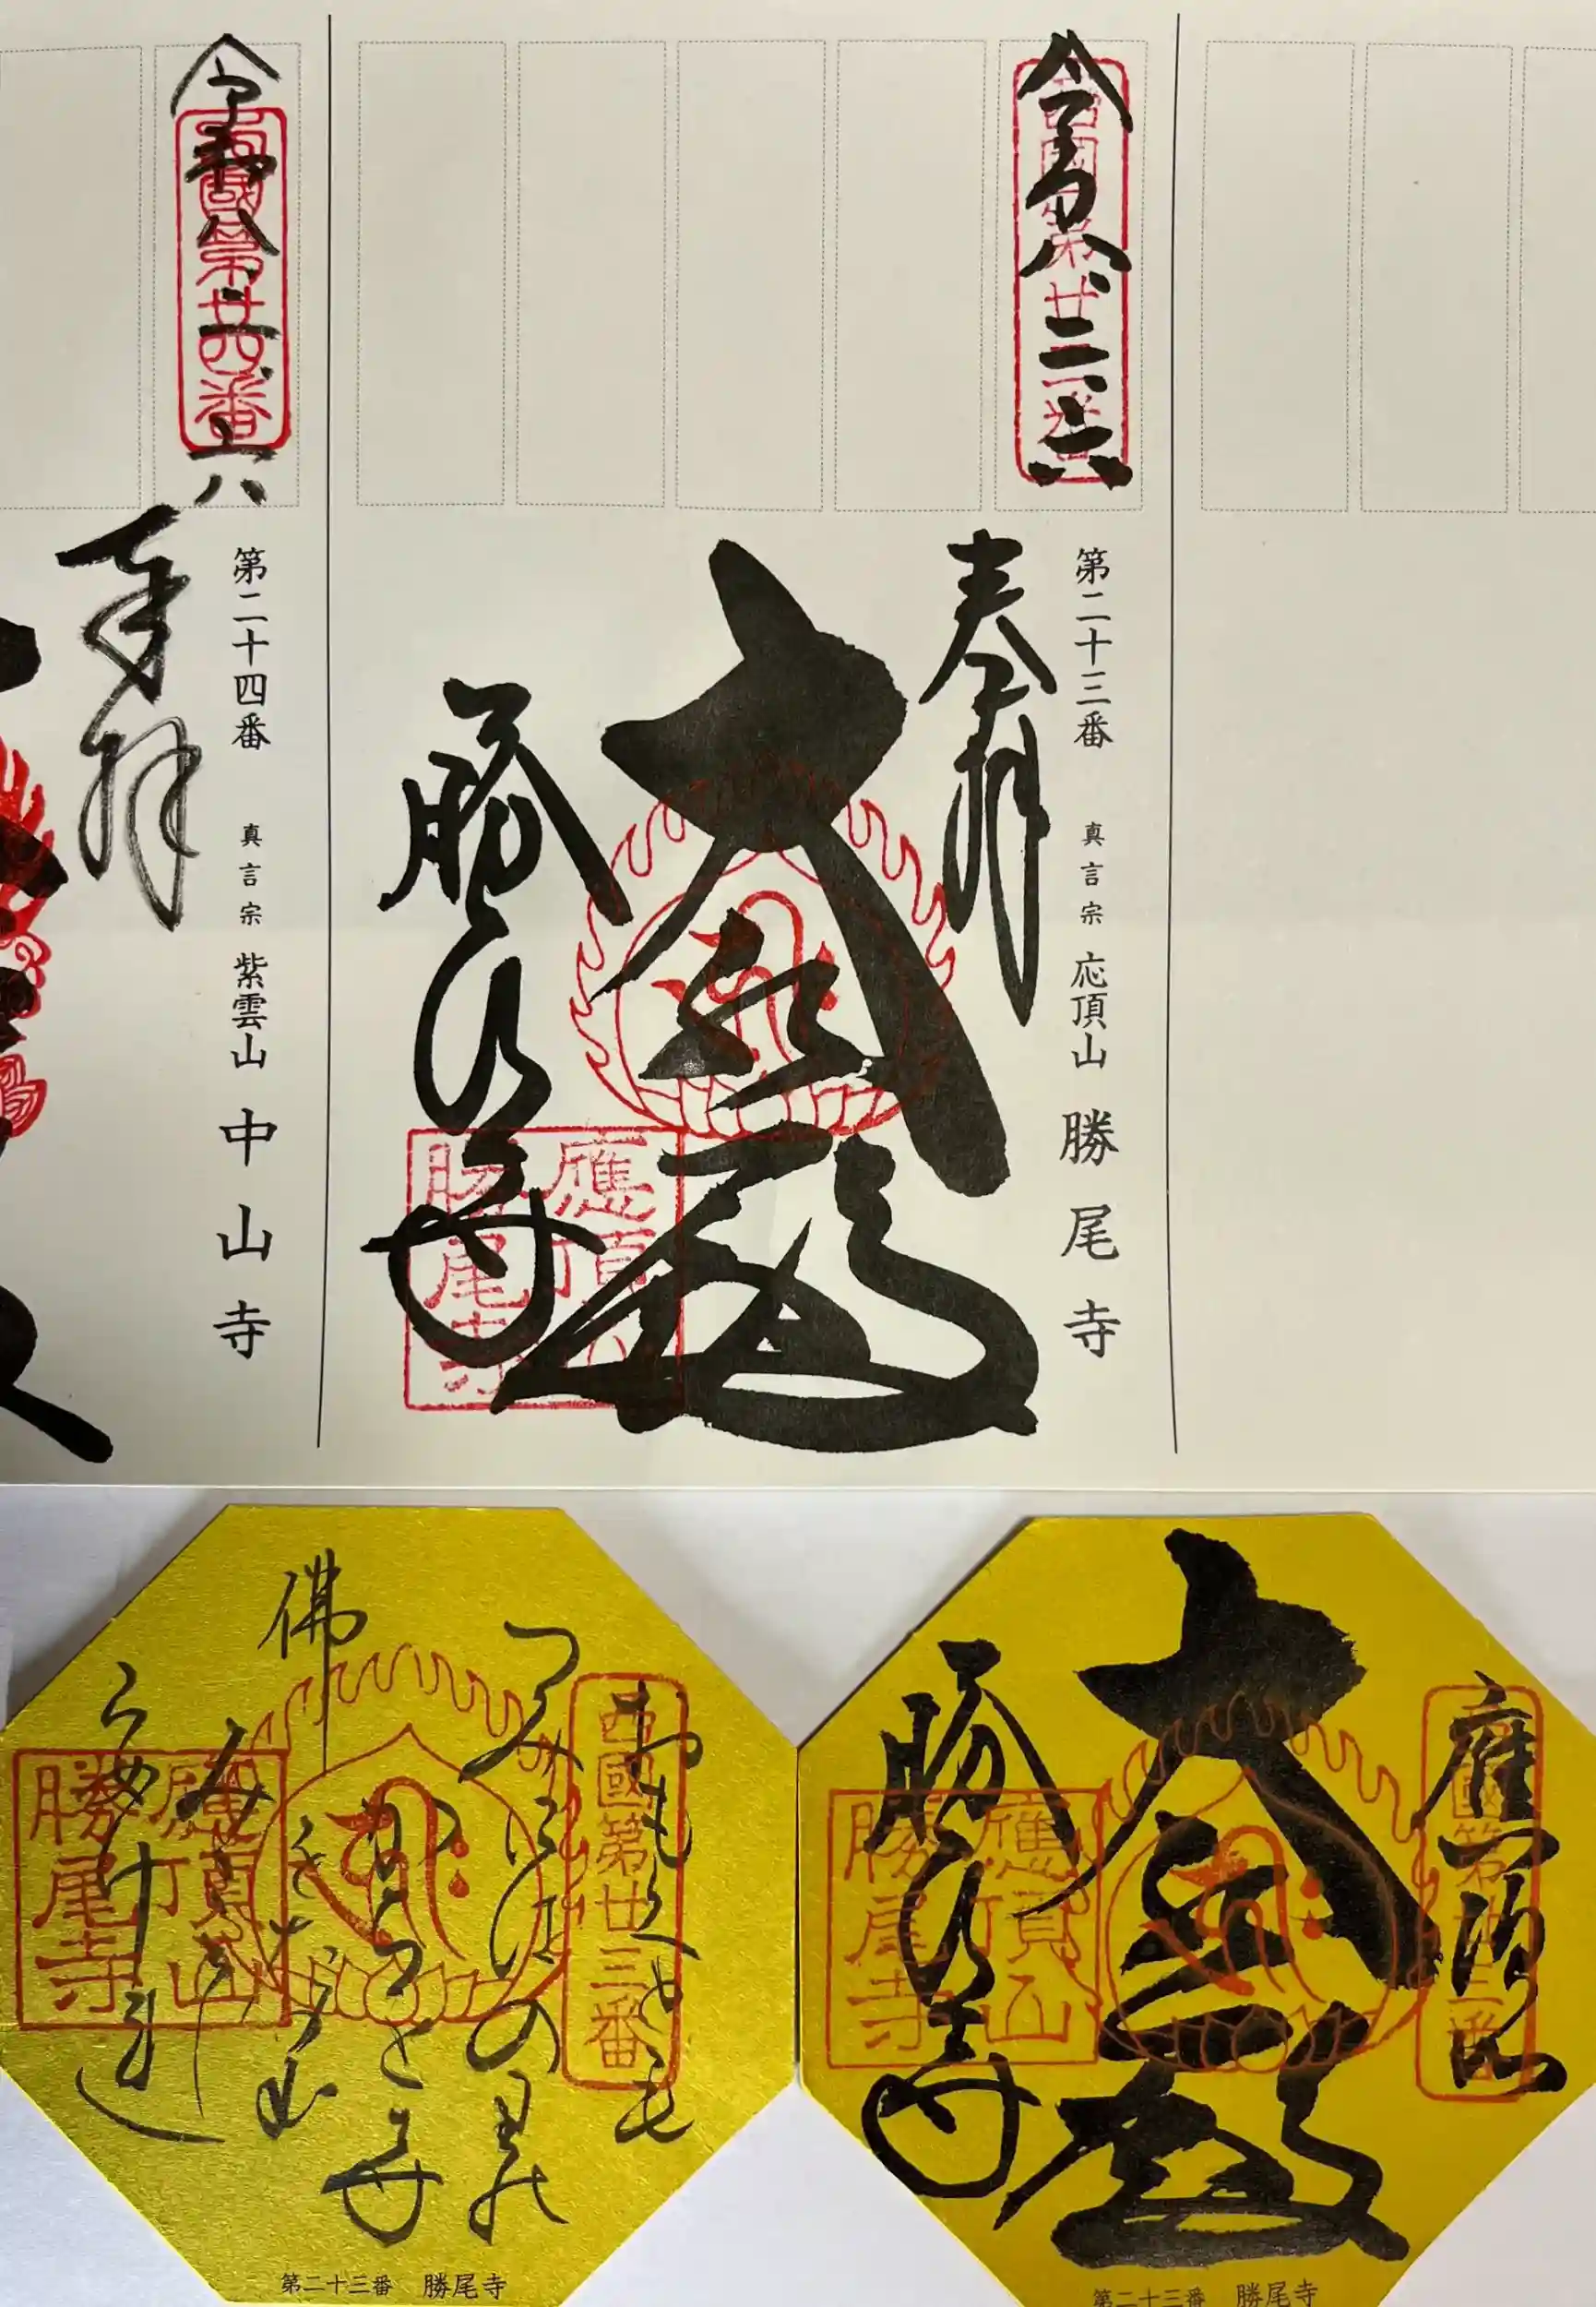 令和八、二、六
西國第廿三番
第二十三番　真言宗　応頂山　勝尾寺
奉拝
大悲殿
勝尾寺
應頂山
勝尾寺
令和八、二、六
西國第廿四番
第二十四番　真言宗　紫雲山　中山寺
奉拝
西國第廿三番
應頂山
大悲殿
勝尾寺
應頂山
勝尾寺
第二十三番　勝尾寺
西國第廿三番
おもくとも
つみには
佛
應頂山
勝尾寺
第二十三番　勝尾寺